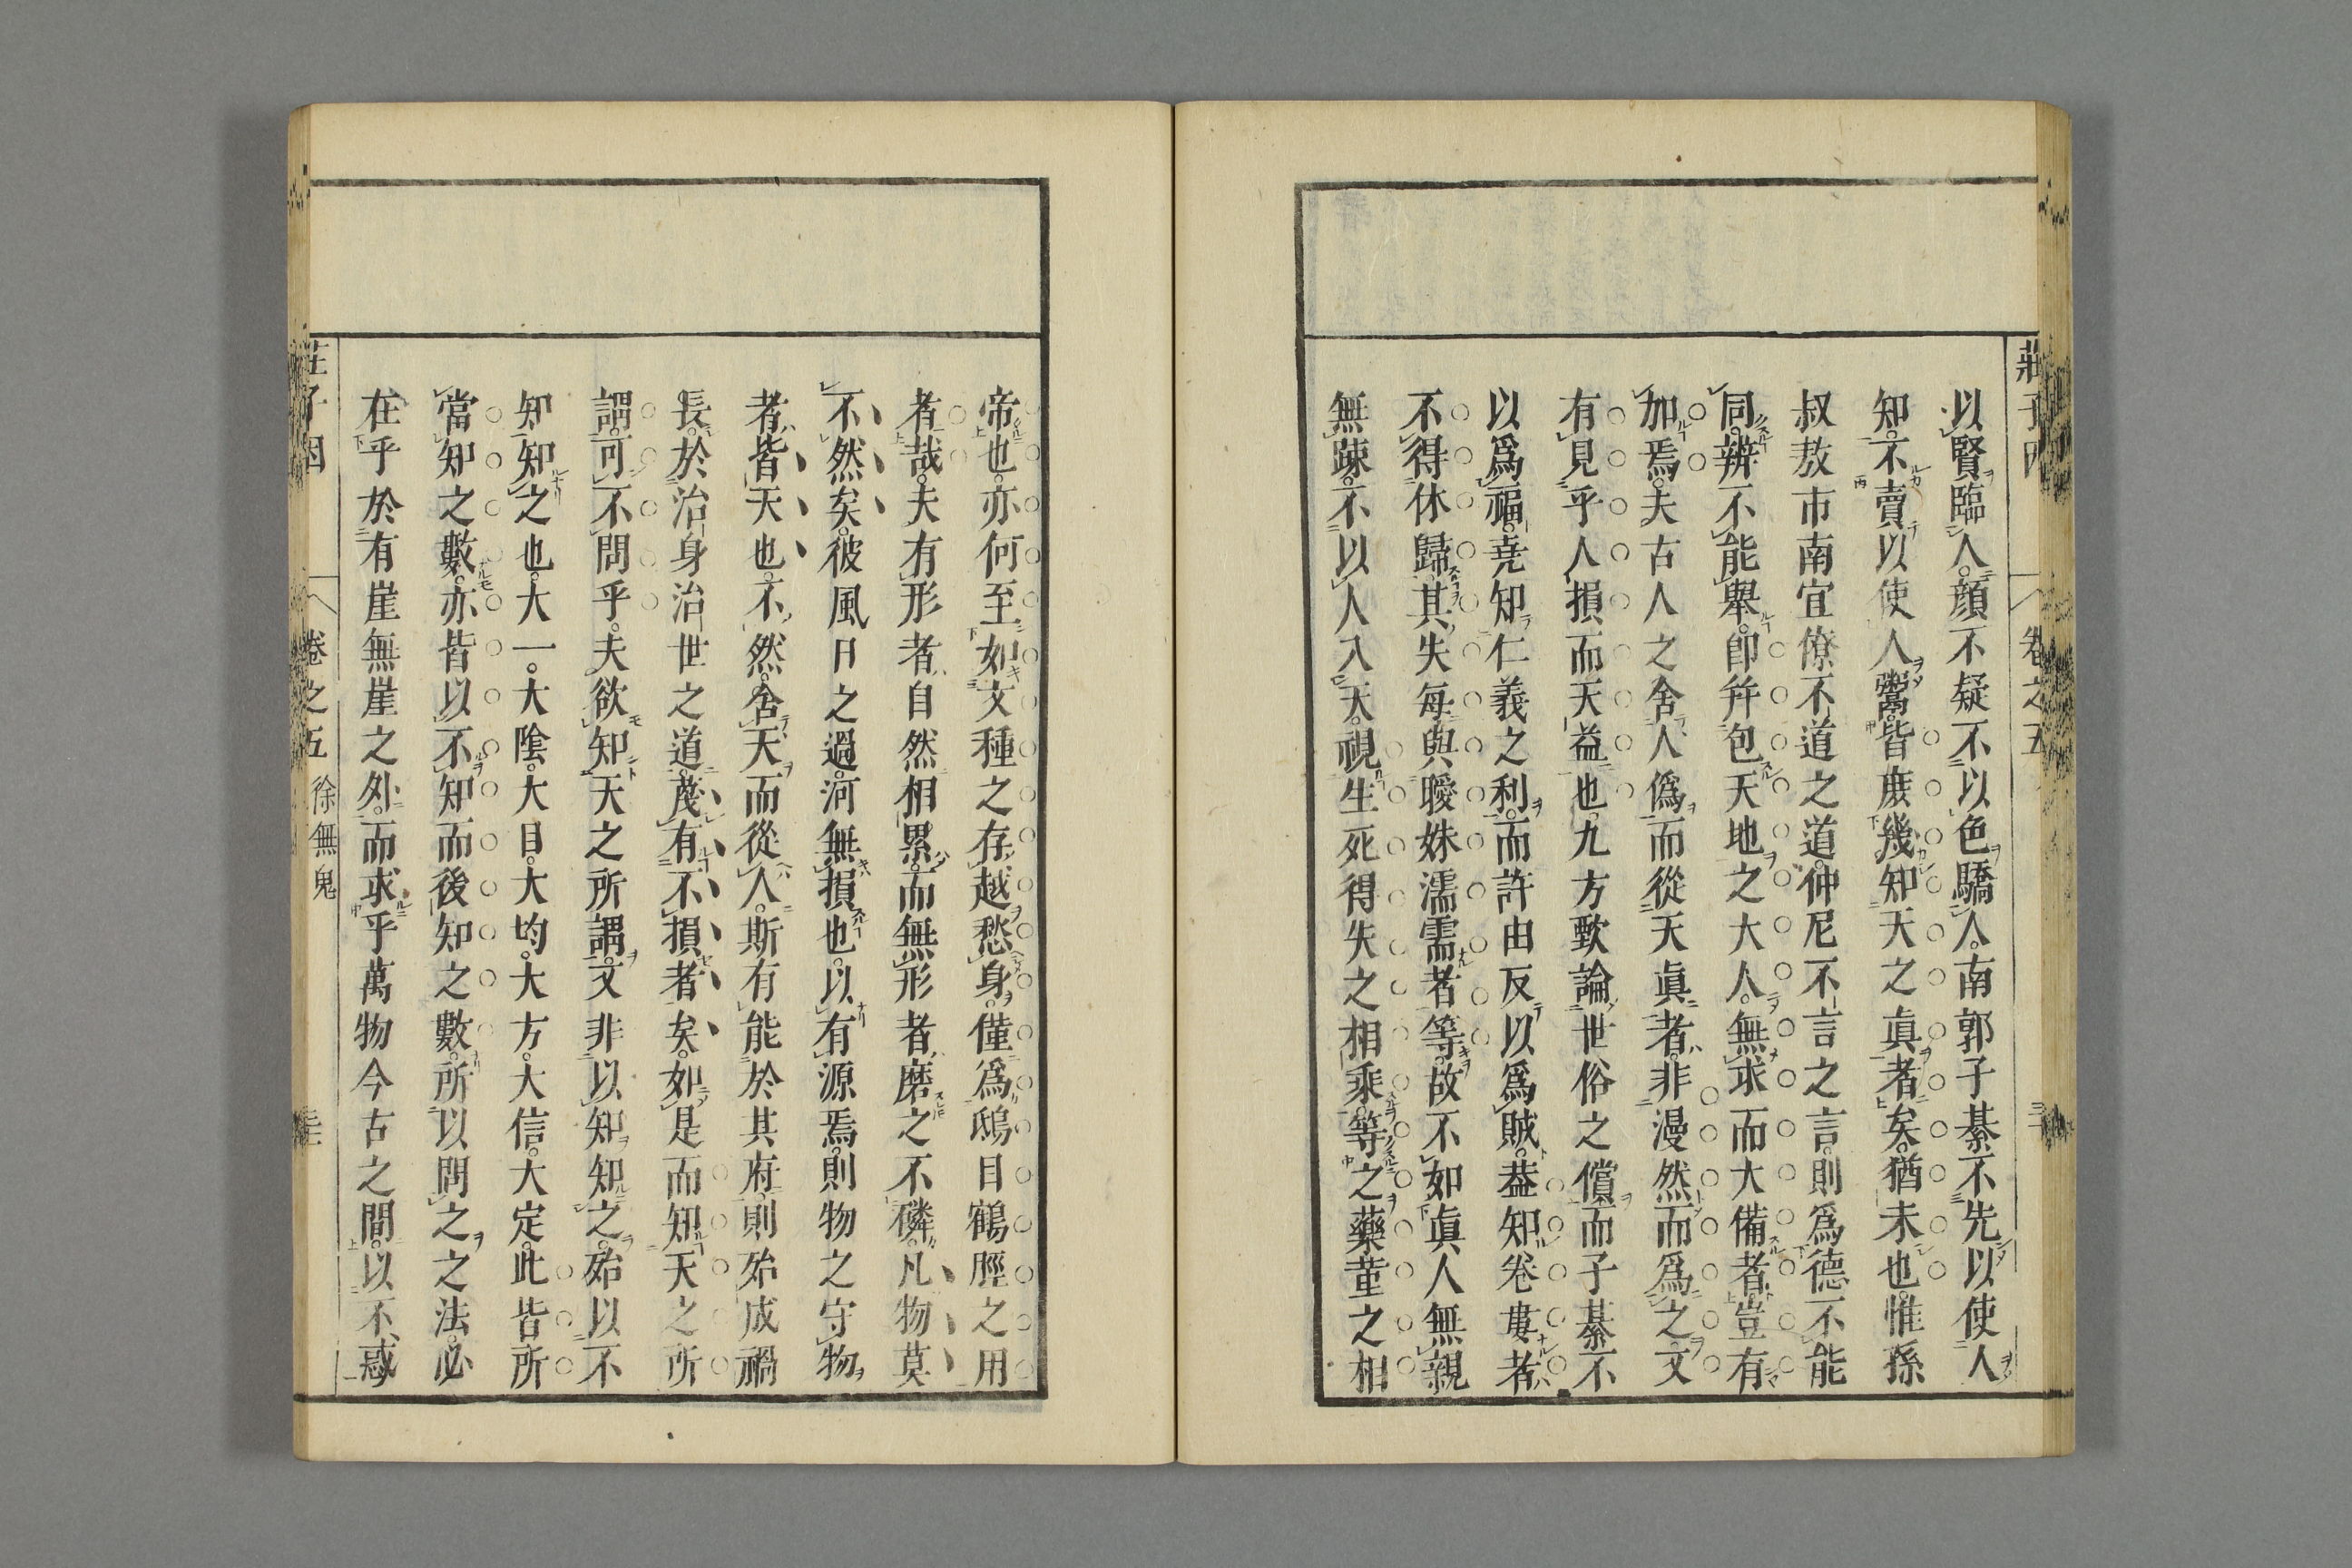 以賢臨人。顔不疑不以色驕人。南郭子綦不先以使人
知。不賣以使人鬻。皆庶幾知天之真者矣。猶未也。惟孫
叔敖市南宜僚不道之道。仲尼不言之言。則爲德不能
同。辨不能舉。卽幷包天地之大人。無求而大備者。豈有
加焉。夫古人之舍人僞而從天眞者。非漫然而爲之。文
有見乎人損而天益也。九方歅論世俗之償。而子綦不
以爲福。堯知仁義之利。而許由反以爲賊。葢知卷婁者
不得休歸。其失每與暖姝濡需者等。故不如眞人無親
無疎。不以人入天。視生死得失之相乘。等之藥菫之相
帝也。亦何至如文種之存越愁身。僅爲鴟目鶴脛之用
者哉。夫有形者自然相累。而無形者磨之不磷。凡物莫
不然矣。彼風日之過河無損也。以有源焉。則物之守物
者皆天也。不然。舍天而從人。斯有能於其府。則殆成禍
長。於治身治世之道。蔑有不損者矣。如是而知天之所
謂。可不問乎。夫欲知天之所謂。文非以知知之。殆以不
知知之也。大一。大陰。大目。大均。大方。大信。大定。此皆所
當知之數。亦皆以不知而後知之數。所以問之之法。必
在乎於有崖無崖之外。而求乎萬物今古之間。以不惑
卷之五
莊子因
卷之五
徐無鬼